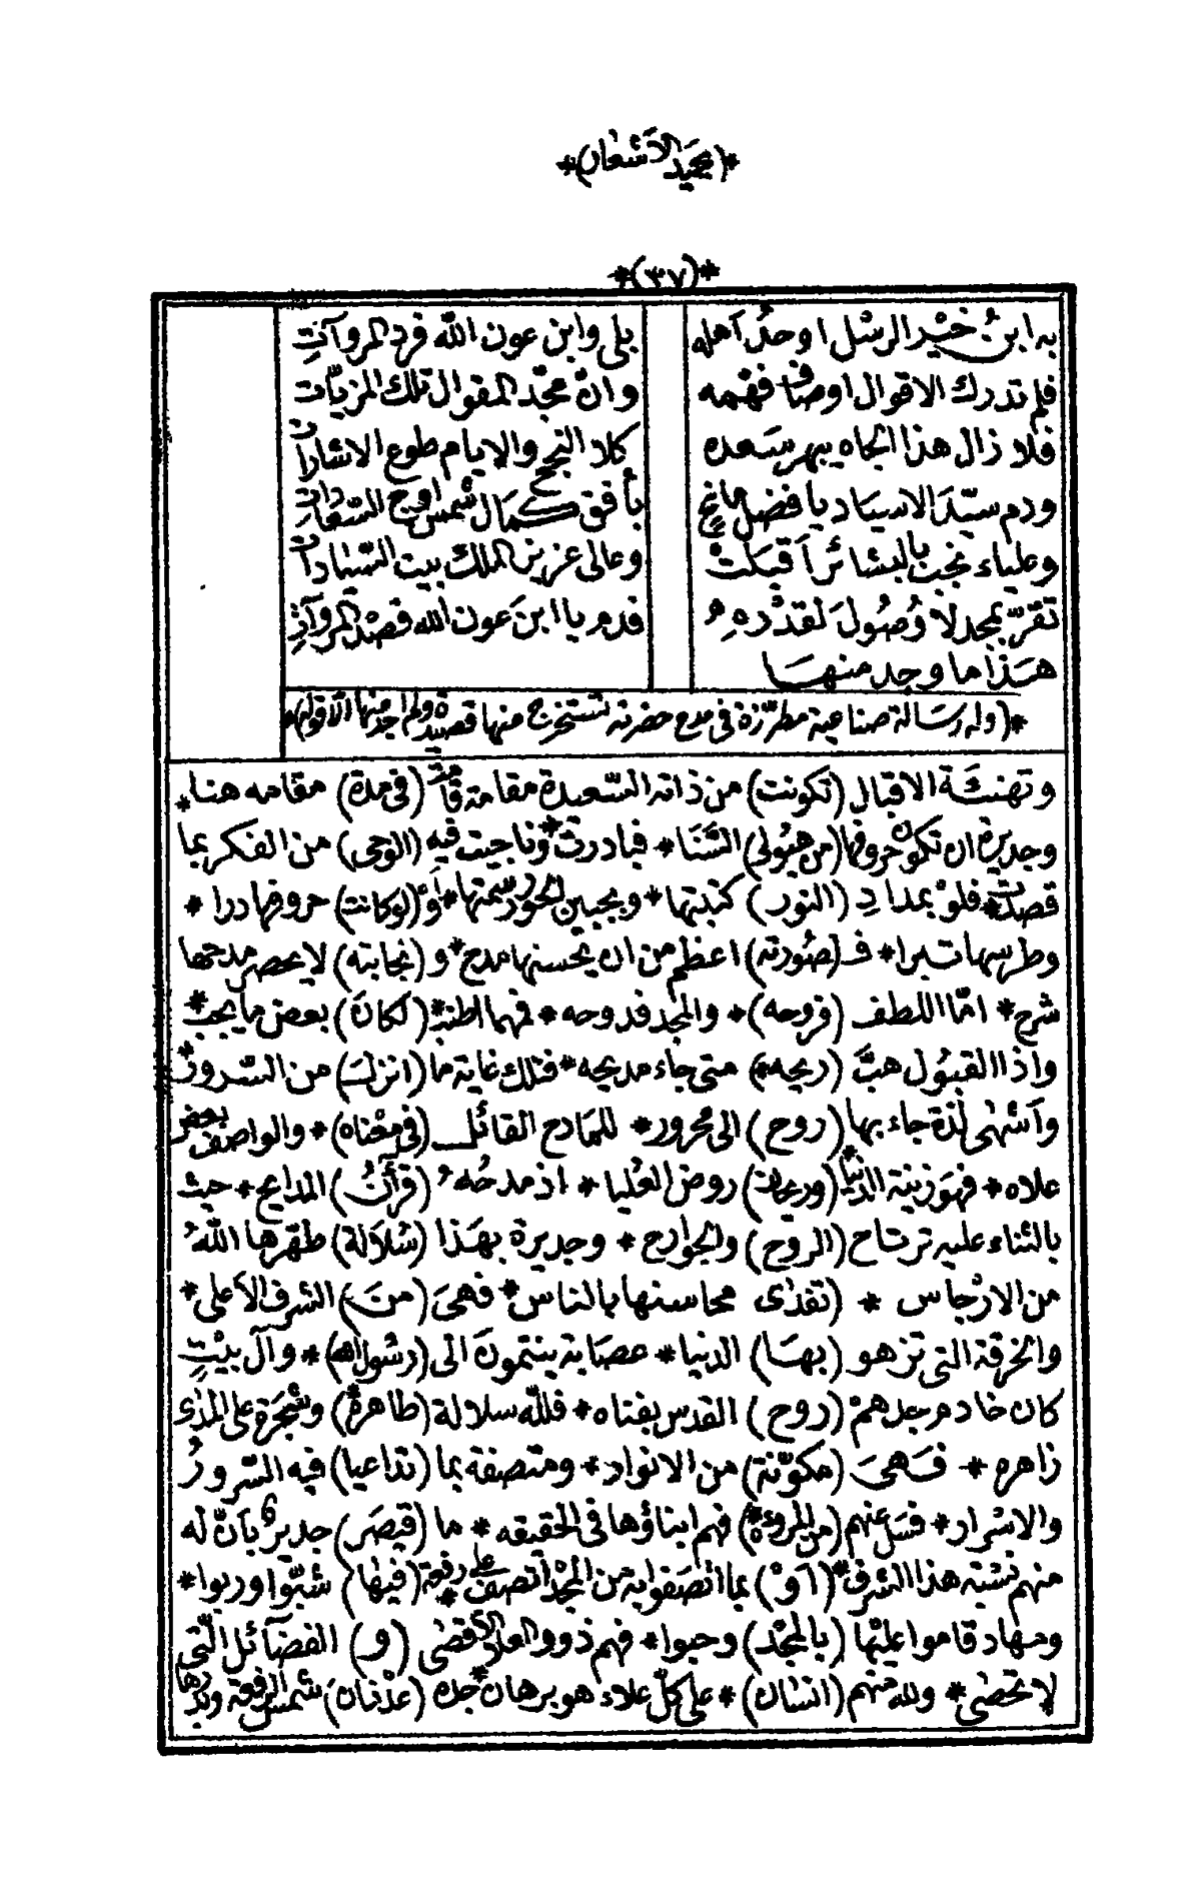 *(بمجيد الأشعار)*
*(٣٧)*
به ابنُ خيْر الرسْل اوحدُ آهله بلى وابن عون الله فرد المروآتِ
فلم تدرك الاقوال اوصاف فهمه وانّ مجّد المقوال تلك المزيّات
فلا زال هذا الجاه يبهر سَعده كلا النجح والايام طوع الاشارات
ودم سيّدَ الاسياد يا فضل مانحٍ بأفق كمَال شمس اوج السّعاداتِ
وعلياء نجب بالبشائر اَقبلتْ وعالى عزيز الملك بيت السّيادات
تقرّ بمجد لا وُصُولَ لقدْرهِ فدم يا ابنَ عون الله قصْد المروآتِ
هَذا ما وجد منهَا
*(وله رسَالة صناعية مطرّزة فى مدح حضرته تستخرج منها قصيدة ولم اجد منها الا قوله)*
وتهنئَة الاقبال (تكونت) من ذاته السّعيدة مقامة قآمت (فى مدة) مقامه هنا *
وجديرة ان تكون حروفها (من هيُولى) الثَنَا * فبادرت * وناجيت فيهِ (الوحى) من الفكر بما
قصدت * فلوْ بمدادِ (النور) كتبتها * وبجبين الحور رسمتها * أوْ (لوكانت) حروفها دررا *
وطرسها تبرا * فـ (صُورته) اعظم من ان يحسنها مدح * و (نجابته) لا يحصر مدحها
شرح * امّا اللطف (فروحه) * والمجد فدوحه * فمهما اطنب * (لكانَ) بعض ما يجب *
واذا القبُول هبَّ (ريحه) * متى جاء مديحه * فتلك غاية ما (انزلـَ) من السّرور *
واَشهٰى لذة جاء بها (روح) الى محرور * للمادح القائلـ (فى معْناه) * والواصف بعض
علاه * فهوَ زينة الدنيا * (وريحان) روض العُليا * اذ مدحُهُ (قرأنُ) المدايح * حيث
بالثناء عليه ترتاح (الروح) والجوارح * وجديرة بهَذا (سُلاَلة) طهّرها اللهُ
من الارْجاس * (تفدٰى) محاسنها بالناس * فهىَ (منَ) الشرف الاَعلى *
والخرقة التى تزهو (بهَا) الدنيا * عصابة ينتمونَ الى (رسُول الله) * وآل بيْتٍ
كان خادم جدهمْ (روح) القدس بفناه * فللّه سلالة (طاهرةٌ) وشجرَة على المدٰى
زاهره * فَهىَ (مكوّنة) من الانوار * ومتصفة بما (تداعيا) فيه السّرورُ
والاسْرار * فسَل عنهم (من المروءة) * فهم ابناؤها فى الحقيقه * ما (قيصَر) جدير بانّ له
منهم نسْبة هذا الشرف * (اوْ) بما اتصَفوا به من المجْد اتصف * على رفعة (فيها) شبّوا وربوا *
ومهاد قاموا عليْها (بالمجْد) وحبوا * فهم ذوو العلاء الاَقصٰى * (و) الفضآئل الّتى
لا تحصٰى * ولله منهم (انسَان) * على كلّ علاء هو برهان * جده (عدْنان) شمس الرفعة وبدرها